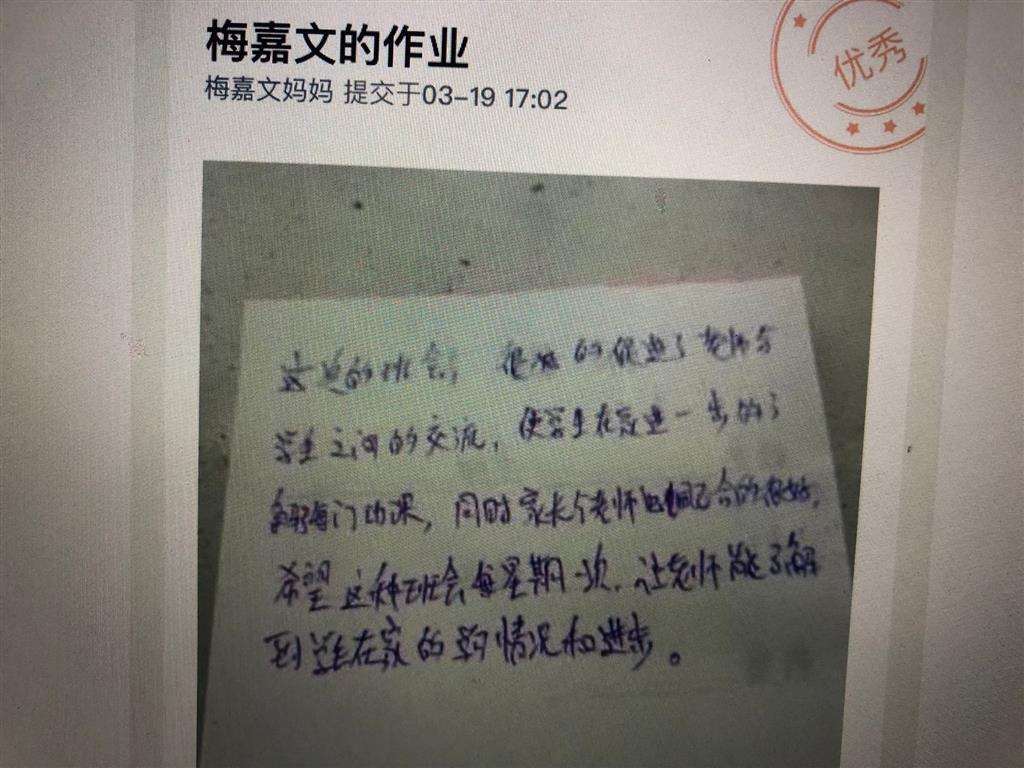 梅嘉文的作业
梅嘉文妈妈 提交于03-19 17:02
优秀
这次的班会，很好的促进了老师与
学生之间的交流，使学生在家进一步的了
解每门功课，同时家长个老师也配合的很好，
希望这种班会每星期一次，让老师能了解
到学生在家的学习情况和进步。